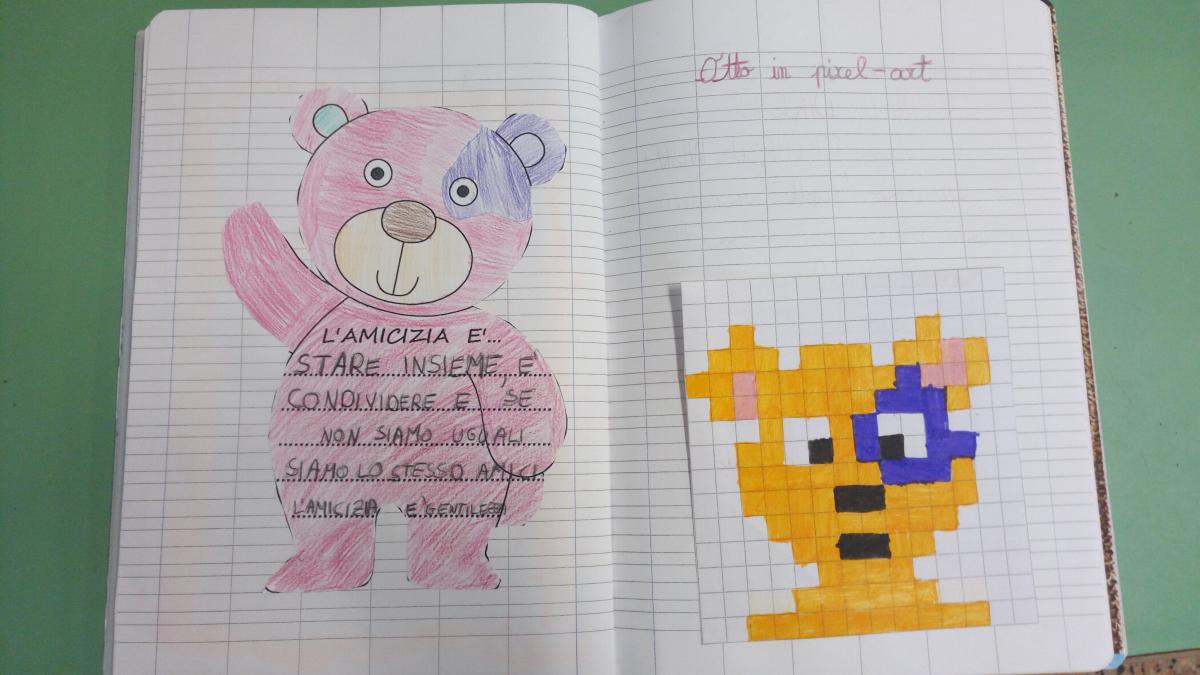 L'AMICIZIA E'...
STARE INSIEME, E'
CONDIVIDERE E, SE
NON SIAMO UGUALI
SIAMO LO STESSO AMICI
L'AMICIZIA E' GENTILEZZA
Otto in pixel-art